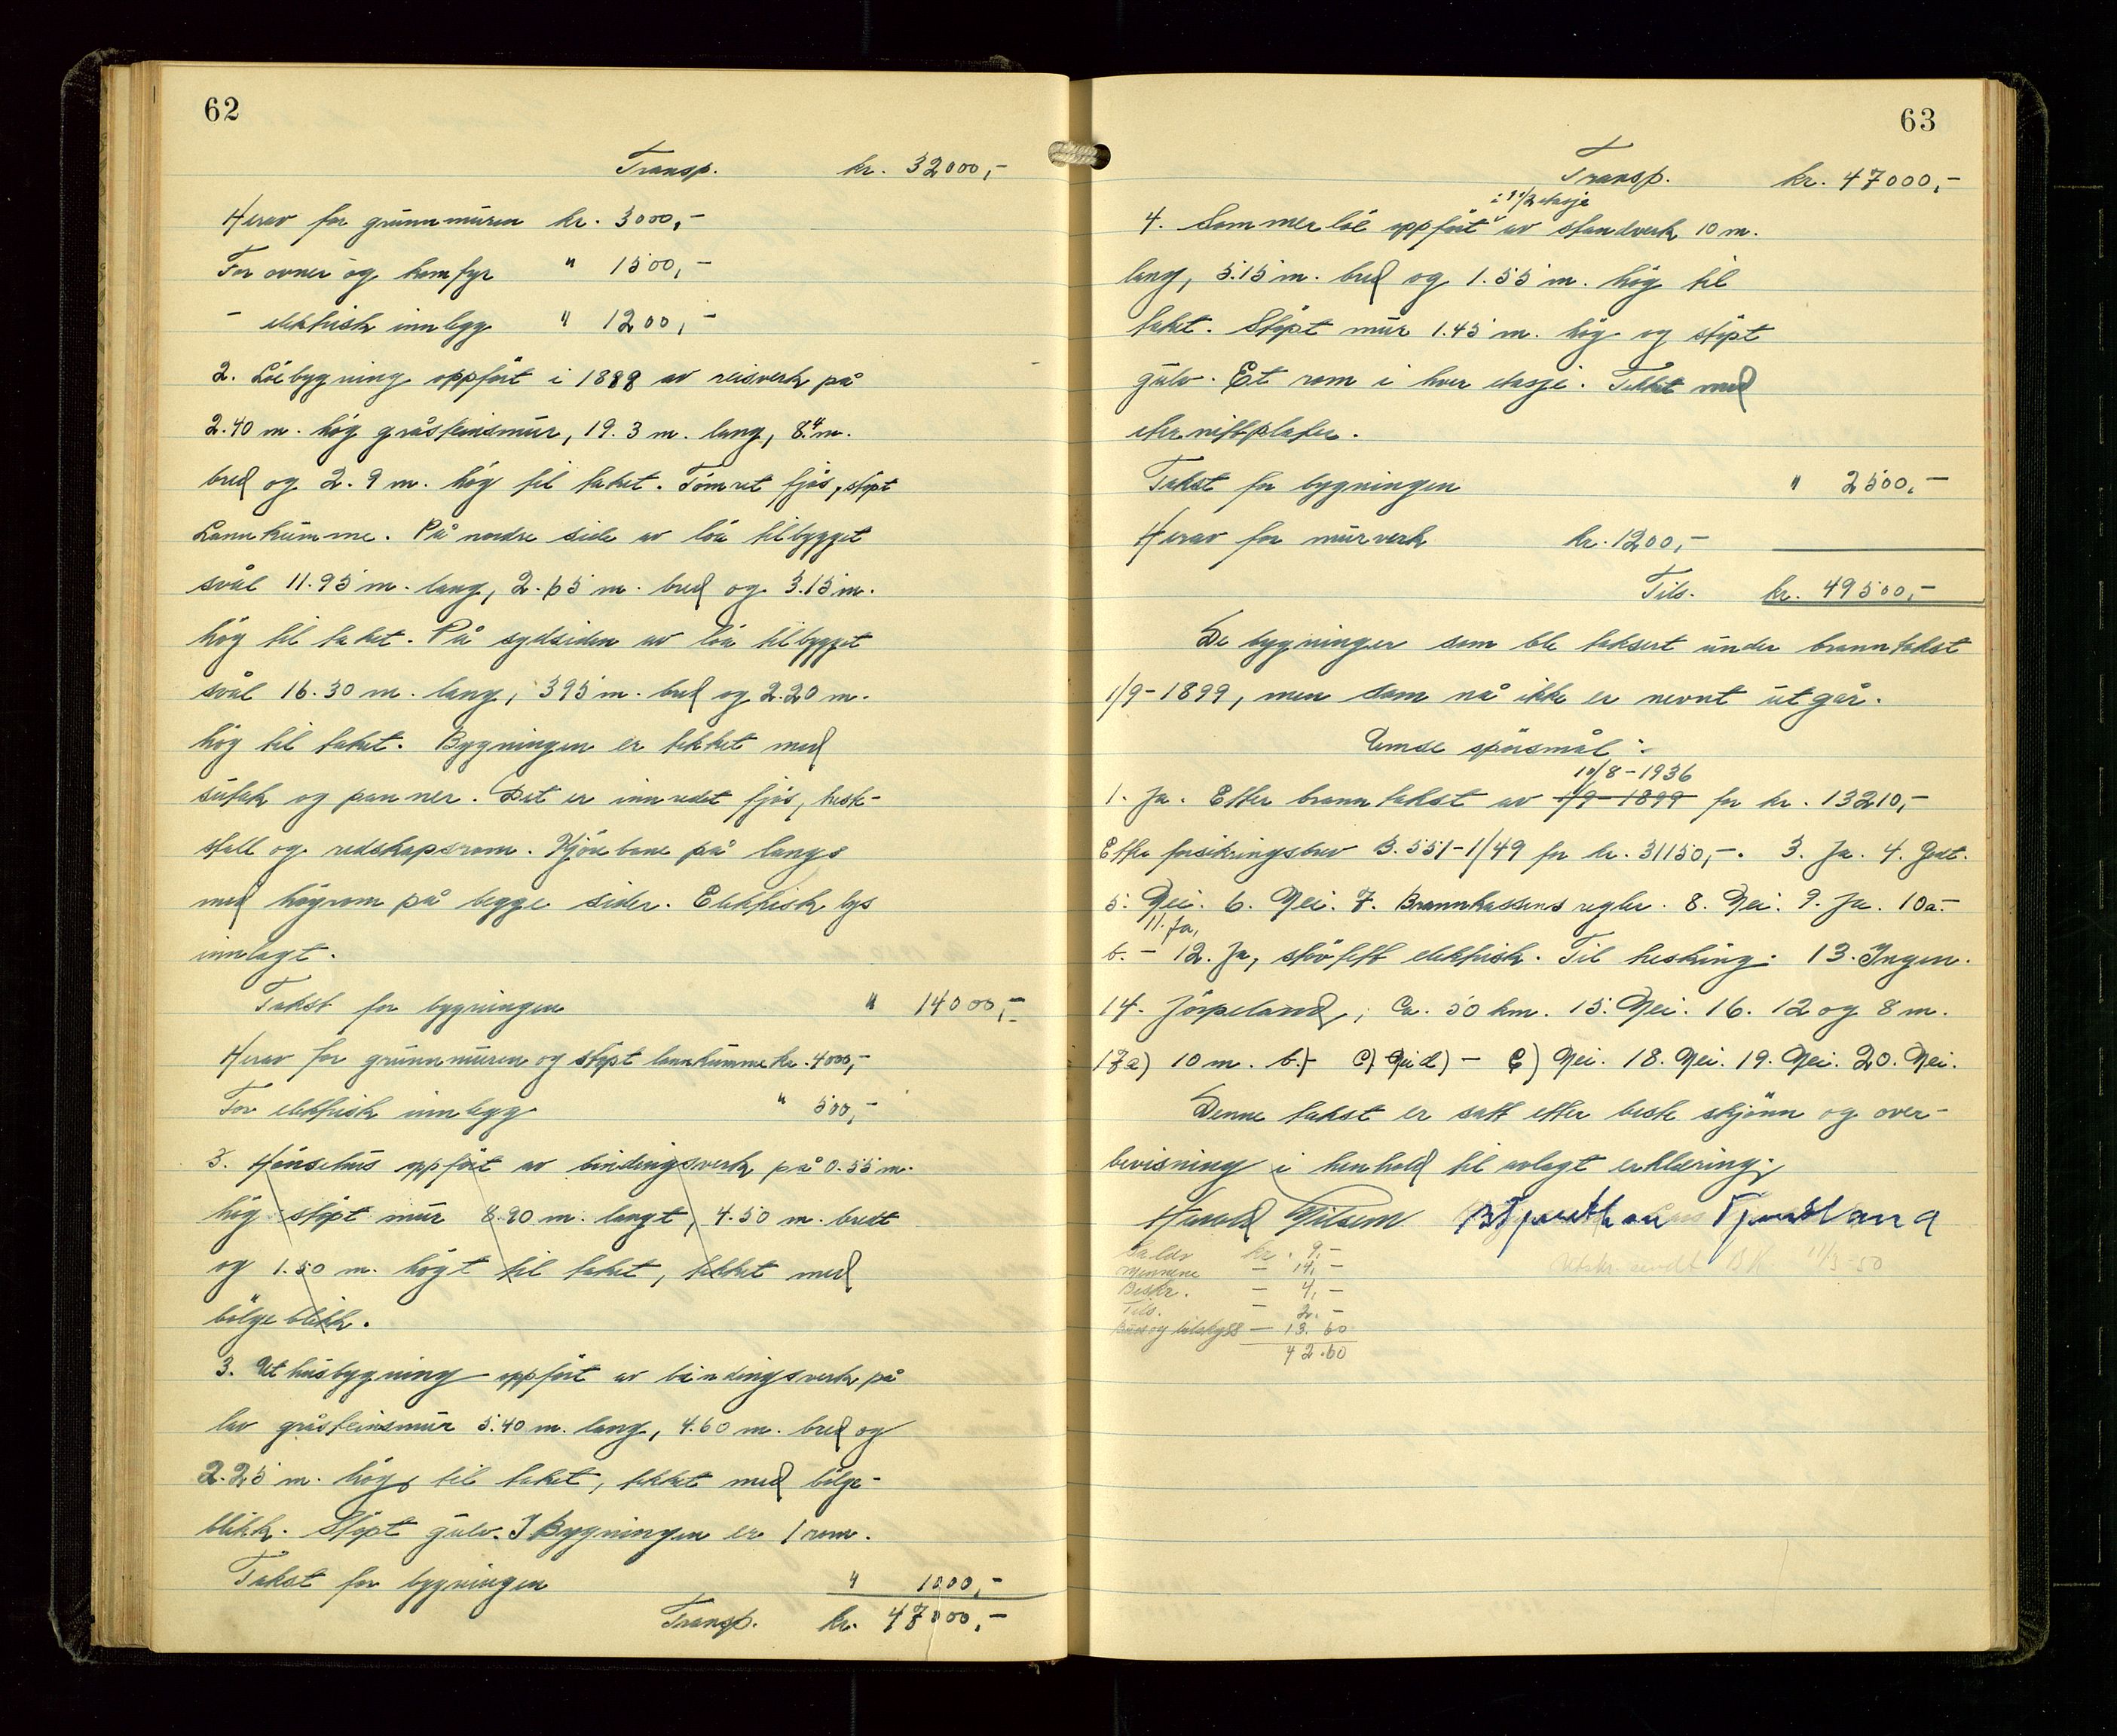 62
Transp. kr. 32000,-
Herav for grunnmuren kr. 3000,-
For ovner og komfyr " 1500,-
- elektrisk innlegg " 1200,-
2. Löebygning oppfört i 1888 av reisverk på
2.40 m. hög gråsteinsmur, 19.3 m. lang, 8.4 m.
bred og 2.9 m. hög til taket. Tömret fjös, stöpt
Lannkumme. På nordre side av löa tilbygget
svål 11.95 m. lang, 2.65 m. bred og 3.15 m.
hög til taket. På sydsiden av löa tilbygget
svål 16.30 m. lang, 395 m. bred og 2.20 m.
hög til taket. Bygningen er tekket med
sutak og panner. Det er innredet fjös, hest-
stall og redskapsrom. Kjörebane på langs
med höyrom på begge sider. Elektrisk lys
innlagt.
Takst for bygningen " 14000,-
Herav for grunnmuren og stöpt lannkumme kr. 4000,-
For elektrisk innlegg " 500,-
3. Hönsehus oppfört av bindingsverk på 0.55 m.
hög stöpt mur 8.90 m. langt, 4.50 m. bredt
og 1.50 m. högt til taket, tekket med
bölgeblikk.
3. Uthusbygning oppfört av bindingsverk på
lav gråsteinsmur 5.40 m. lang, 4.60 m. bred og
2.25 m. hög til taket, tekket med bölge-
blikk. Stöpt gulv. I Bygningen er 1 rom.
Takst for bygningen " 1000,-
Transp. kr. 47000,-
63
Transp. kr. 47000,-
i 1 1/2 etasje
4. Sommerlöe oppfört av standverk 10 m.
lang, 5.15 m. bred og 1.55 m. hög til
taket. Stöpt mur 1.45 m. hög og stöpt
gulv. Et rom i hver etasje. Tekket med
eternittplater.
Takst for bygningen " 2500,-
Herav for murverk kr. 1200,-
Tils. kr. 49500,-
De bygninger som ble taksert under branntakst
1/9-1899, men som nå ikke er nevnt utgår.
Emse spörsmål:
10/8-1936
1. Ja. Etter branntakst av 1/9-1899 for kr. 13210,-
Etter forsikringsbrev B.551-1/49 for kr. 31150,-. 3. Ja. 4. Godt.
5. Nei. 6. Nei. 7. Brannkassens regler. 8. Nei. 9. Ja. 10a.-
11. Ja,
b. - 12. Ja, stövfett elektrisk. Til tresking. 13. Ingen.
14. Jörpeland, Ca. 50 km. 15. Nei. 16. 12 og 8 m.
17a) 10 m. b.)- c) Nei d) - e) Nei. 18. Nei. 19. Nei. 20. Nei.
Denne takst er satt etter beste skjönn og over-
bevisning i henhold til avlagt erklæring.
Harald Nilsen
kr. 9.-
Mennene - 14,-
Beskr. - 4,-
Tils. - 2.-
- 13.60
42.60
Utskr. sendt BK 11/3-50